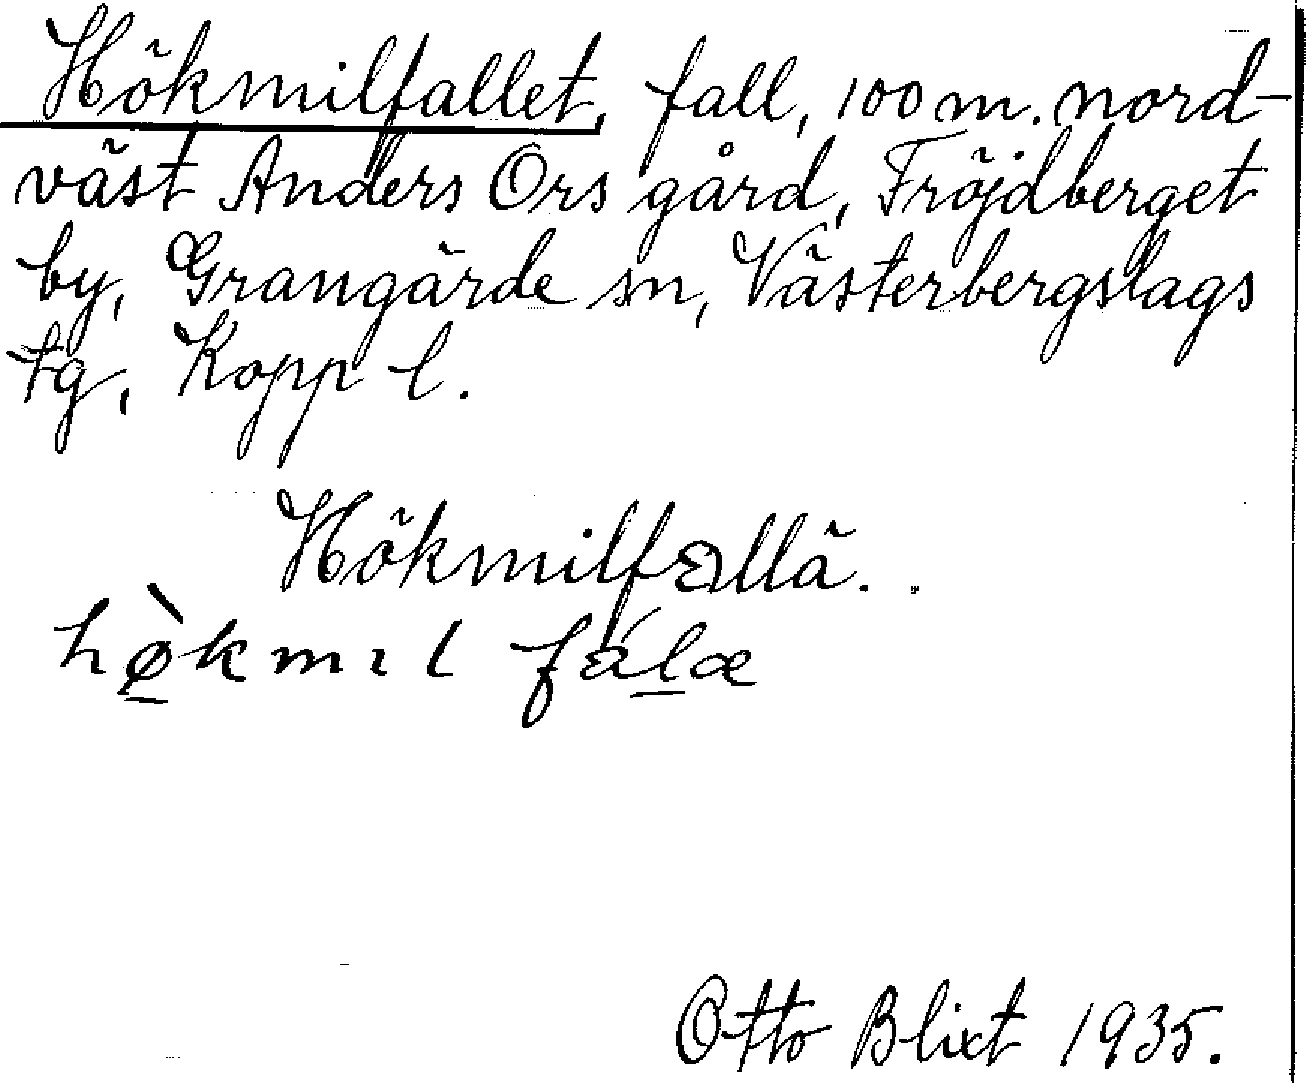 Hökmilfallet, fall, 100 m. nord-
väst Anders Ors gård, Fröjdberget
by, Grangärde sn, Västerbergslags
tg, Kopp l.
Hökmilfallä.
hø̠̀kmıl fál̠æ
Otto Blixt 1935.